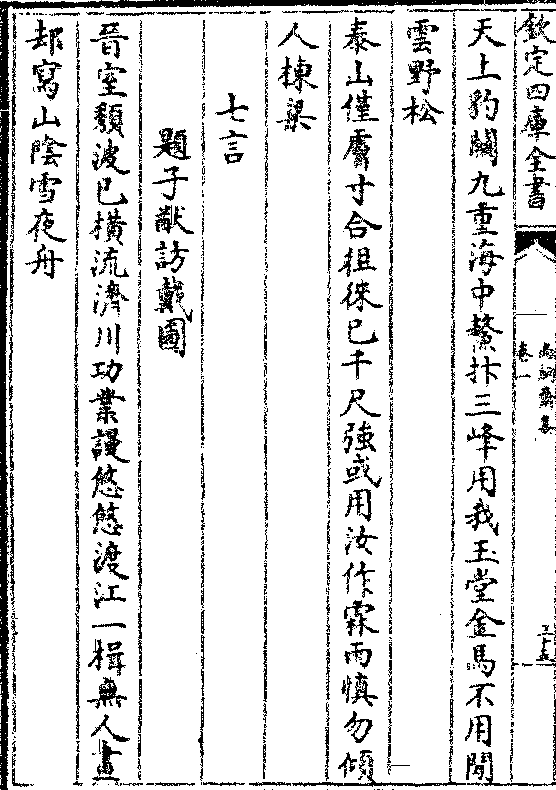 欽定四庫全書
尚絅齋集
卷一
三十五
天上豹關九重海中鰲抃三峰用我玉堂金馬不用閒
雲野松
泰山僅膚寸合徂徠已千尺強或用汝作霖雨慎勿傾
人棟梁
七言
題子猷訪戴圖
晉室頽波已橫流濟川功業謾悠悠渡江一楫無人畫
却寫山陰雪夜舟